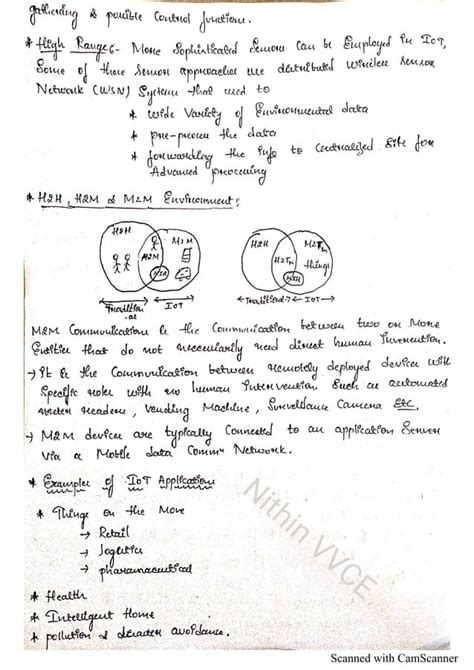 gathering & possible Control functions.
* High Range :- More Sophisticated Sensors Can be Employed in IoT,
Some of these Sensor approaches use distributed wireless sensor
Network (WSN) System that used to
* wide Variety of Environmental data
* pre-process the data
* forwarding the info to Centralized Site for
Advanced processing
* H2H, H2M & M2M Environment:
H2H
H2M
M2M
H2H
H2Tn
M2Tn
things
Tradition
-al
IoT
Traditional
IoT
M2M Communication is the Communication between two or More
Entities that do not necessarily need direct human Invention.
→ It is the Communication between remotely deployed devices with
Specific roles with no human Intervention. Such as automated
meter readers, Vending Machine, Surveillance Camera Etc.
→ M2M devices are typically Connected to an application Server
Via a Mobile data Commn Network.
* Examples of IoT Application
* Things on the Move
→ Retail
→ logistics
→ pharamaceutical
* Health
* Intelligent Home
* pollution & disaster avoidance.
Nithin VVCE
Scanned with CamScanner